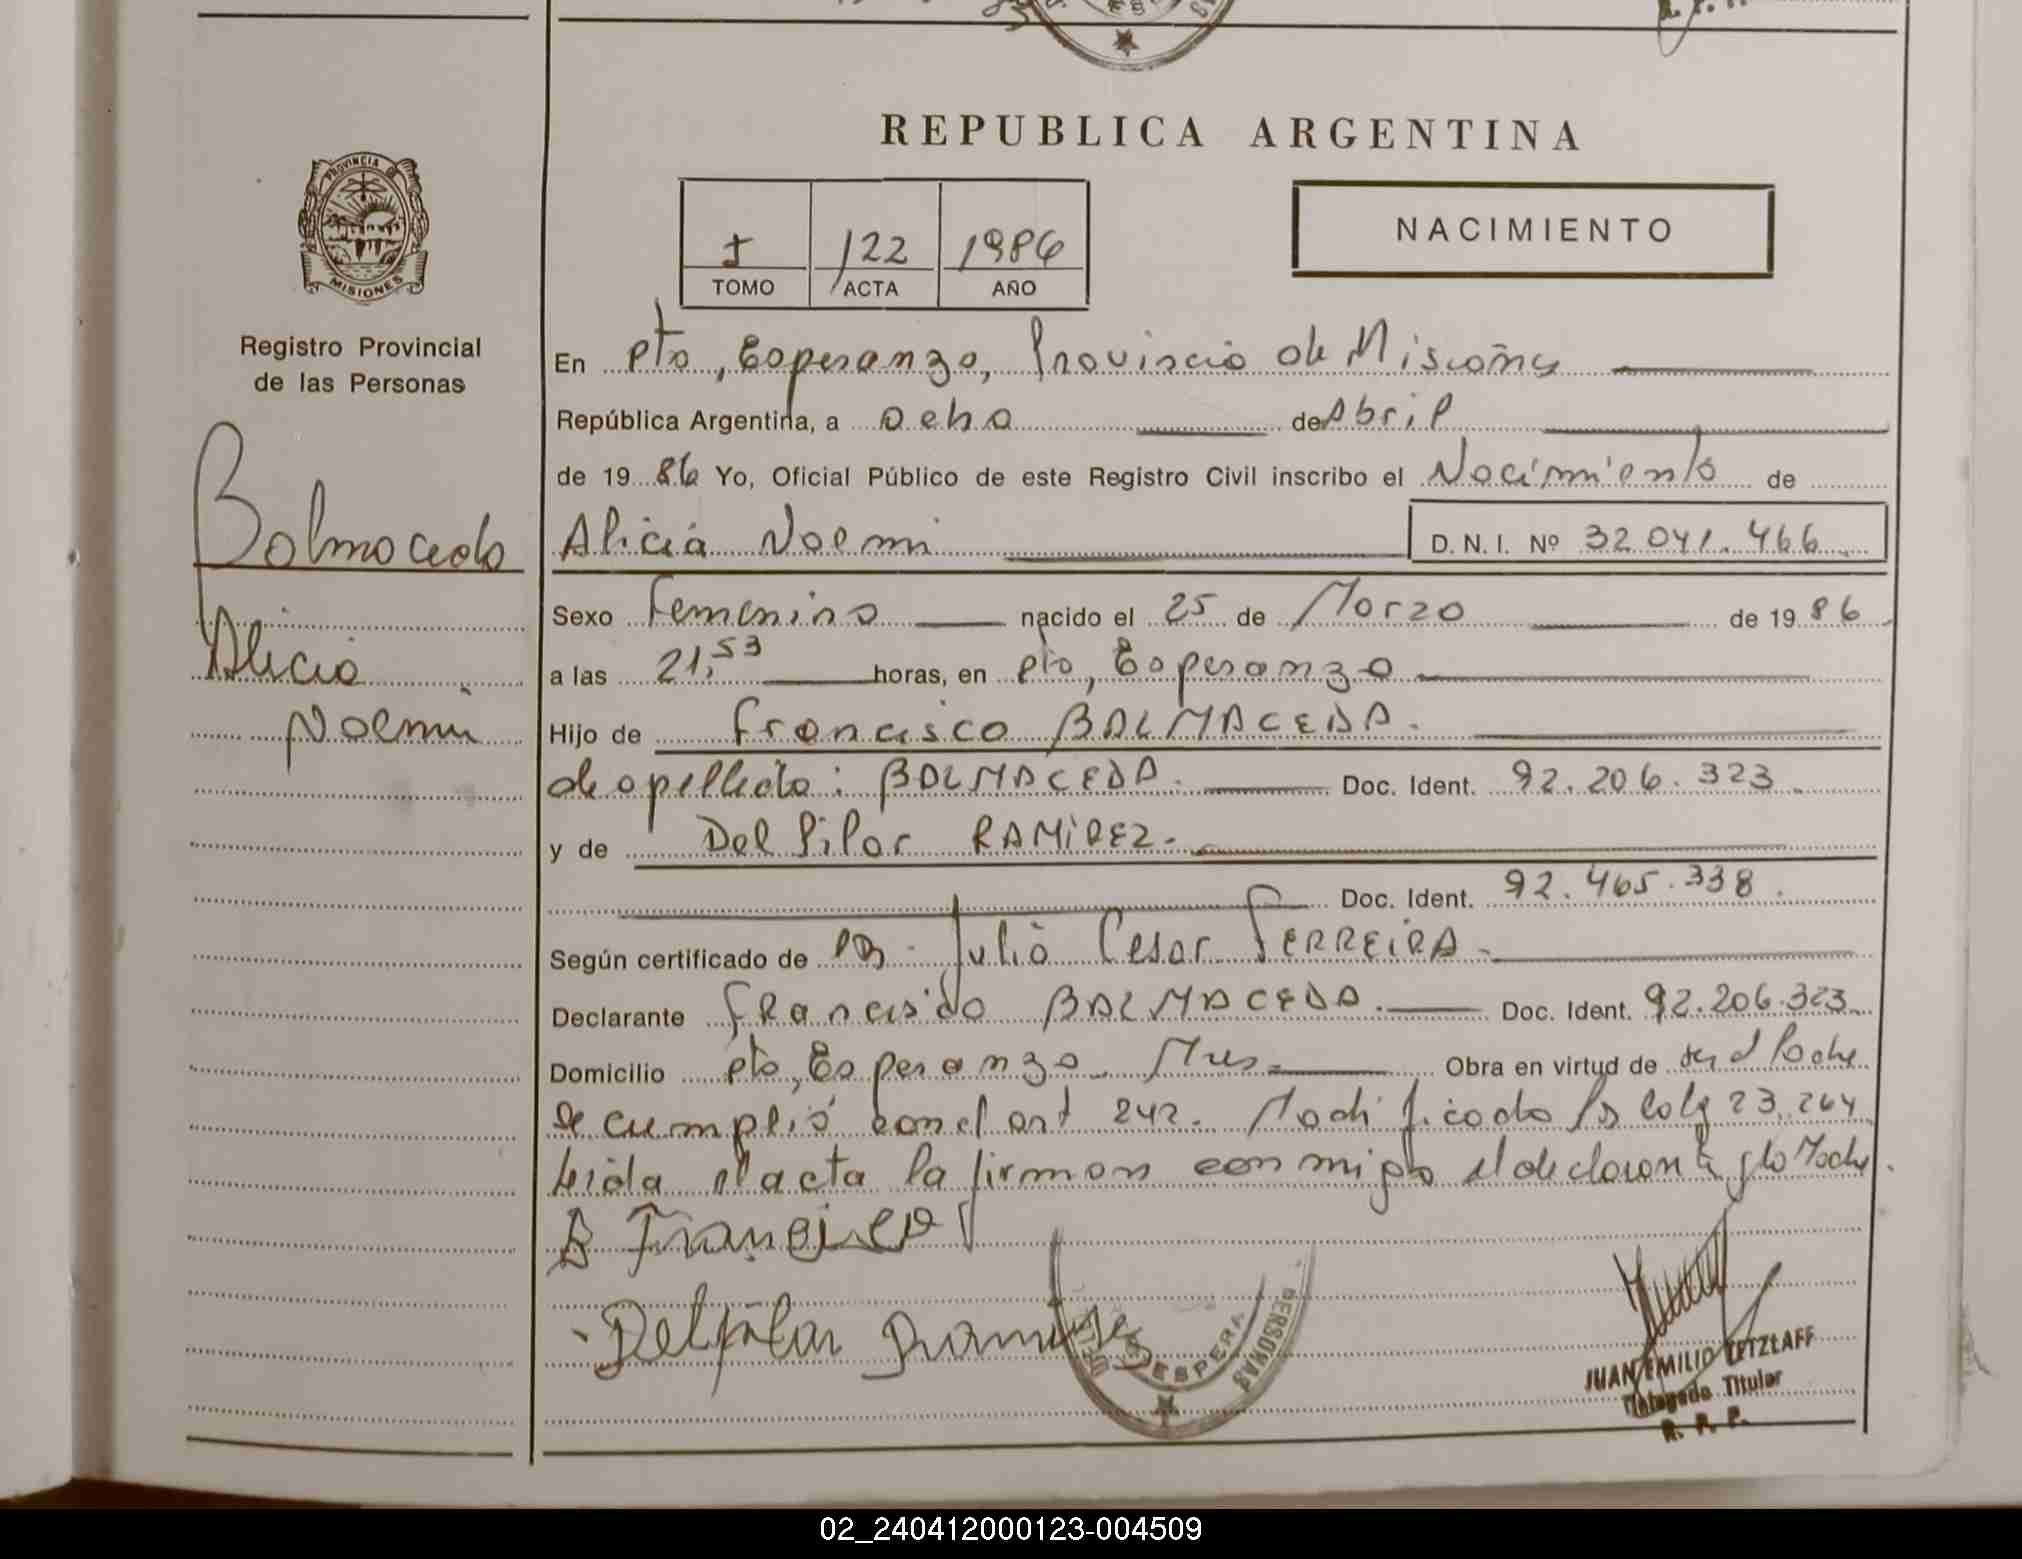 REPUBLICA ARGENTINA
PROVINCIA DE
MISIONES
Registro Provincial
de las Personas
I 122 1986
TOMO ACTA AÑO
NACIMIENTO
Balmaceda
Alicia
Noemi
En Pto, Esperanza, Provincia de Misiones
República Argentina, a ocho de Abril
de 19 86 Yo, Oficial Público de este Registro Civil inscribo el Nacimiento de
Alicia Noemi D. N. I. Nº 32.041.466
Sexo Femenino nacido el 25 de Marzo de 19 86
a las 21,53 horas, en Pto, Esperanza
Hijo de Francisco BALMACEDA.
de apellido: BALMACEDA. Doc. Ident. 92.206.323
y de Del Pilar RAMIREZ.
Doc. Ident. 92.465.338.
Según certificado de Julio Cesar FERREIRA.
Declarante Francisco BALMACEDA. Doc. Ident. 92.206.323
Domicilio Pto, Esperanza Mnes Obra en virtud de ser el Padre
Se cumplió con el art 242. Modificado la ley 23.264
leida el acta la firman conmigo el declarante y la Madre.
B Francisco
Delpilar Ramirez
ESPERA
PERSONAS
JUAN EMILIO TETZLAFF
Delegado Titular
R. P. P.
02_240412000123-004509